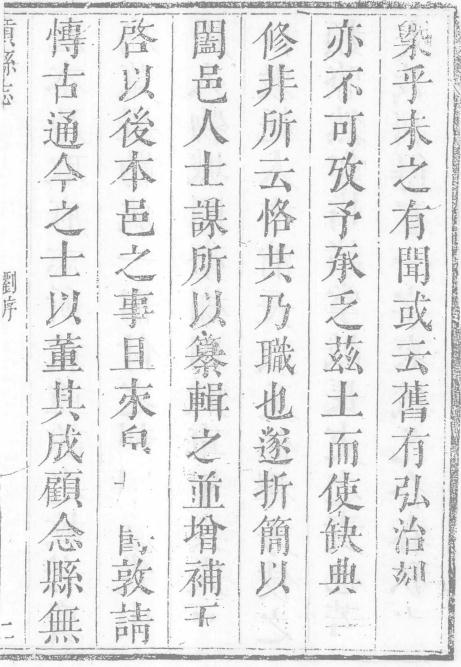 乎未之有聞或云舊有弘治刻
亦不可攷予承乏茲土而使缺典
修非所云恪共乃職也遂折簡以
闔邑人士謀所以纂輯之並增補天
啓以後本邑之事且 敦請
慱古通今之士以董其成顧念縣無
縣志
劉序
二